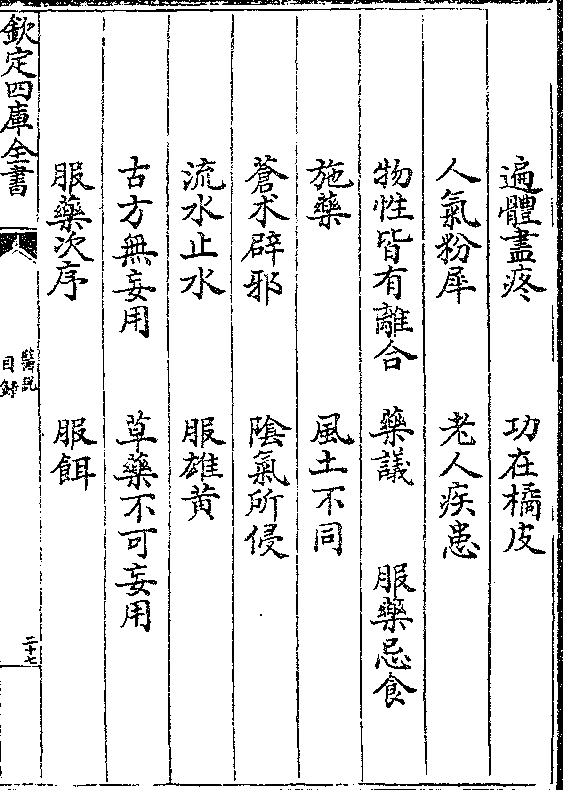 遍體盡疼　功在橘皮
人氣粉犀　老人疾患
物性皆有離合　藥議　服藥忌食
施藥　風土不同
蒼朮辟邪　陰氣所侵
流水止水　服雄黃
古方無妄用　草藥不可妄用
服藥次序　服餌
欽定四庫全書
醫說
目録
二十七